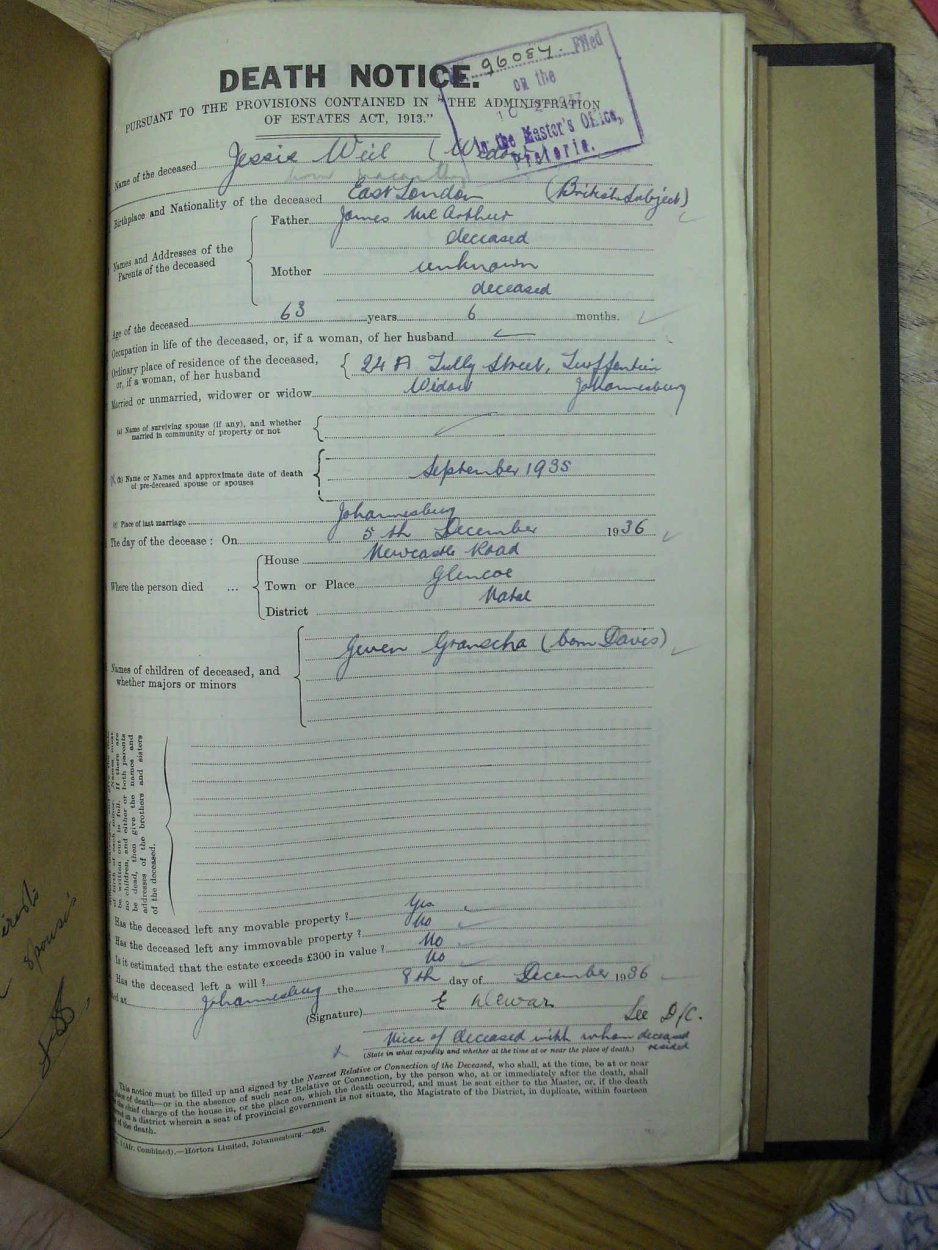 DEATH NOTICE.
96084. Filed
on the
In the Master's Office,
Pretoria.
PURSUANT TO THE PROVISIONS CONTAINED IN "THE ADMINISTRATION
OF ESTATES ACT, 1913."
Name of the deceased Jessie Weil
Birthplace and Nationality of the deceased East London (British Subject)
Names and Addresses of the Parents of the deceased
Father James McArthur
deceased
Mother unknown
deceased
Age of the deceased 63 years 6 months.
Occupation in life of the deceased, or, if a woman, of her husband
Ordinary place of residence of the deceased, or, if a woman, of her husband 24 A Tully Street, Turffontein
Johannesburg
Married or unmarried, widower or widow Widow
(a) Name of surviving spouse (if any), and whether married in community of property or not
(b) Name or Names and approximate date of death of pre-deceased spouse or spouses September 1935
(c) Place of last marriage Johannesburg
The day of the decease : On 5th December 1936
Where the person died ...
House Newcastle Road
Town or Place Glencoe
District Natal
Names of children of deceased, and whether majors or minors
Gwen Granscha (born Davis)
be written out in full. If there are
no children, and either or both parents
be dead, then give the names and
addresses of the brothers and sisters
of the deceased.
Has the deceased left any movable property ? Yes
Has the deceased left any immovable property ? No
Is it estimated that the estate exceeds £300 in value ? No
Has the deceased left a will ? No
Johannesburg the 8th day of December 1936
(Signature) E Dewar
See D/C.
Niece of deceased with whom deceased
resided
(State in what capacity and whether at the time at or near the place of death.)
This notice must be filled up and signed by the Nearest Relative or Connection of the Deceased, who shall, at the time, be at or near
place of death—or in the absence of such near Relative or Connection, by the person who, at or immediately after the death, shall
the chief charge of the house in, or the place on, which the death occurred, and must be sent either to the Master, or, if the death
in a district wherein a seat of provincial government is not situate, the Magistrate of the District, in duplicate, within fourteen
of the death.
(Afr. Combined).—Hortors Limited, Johannesburg.—628.
spouse's